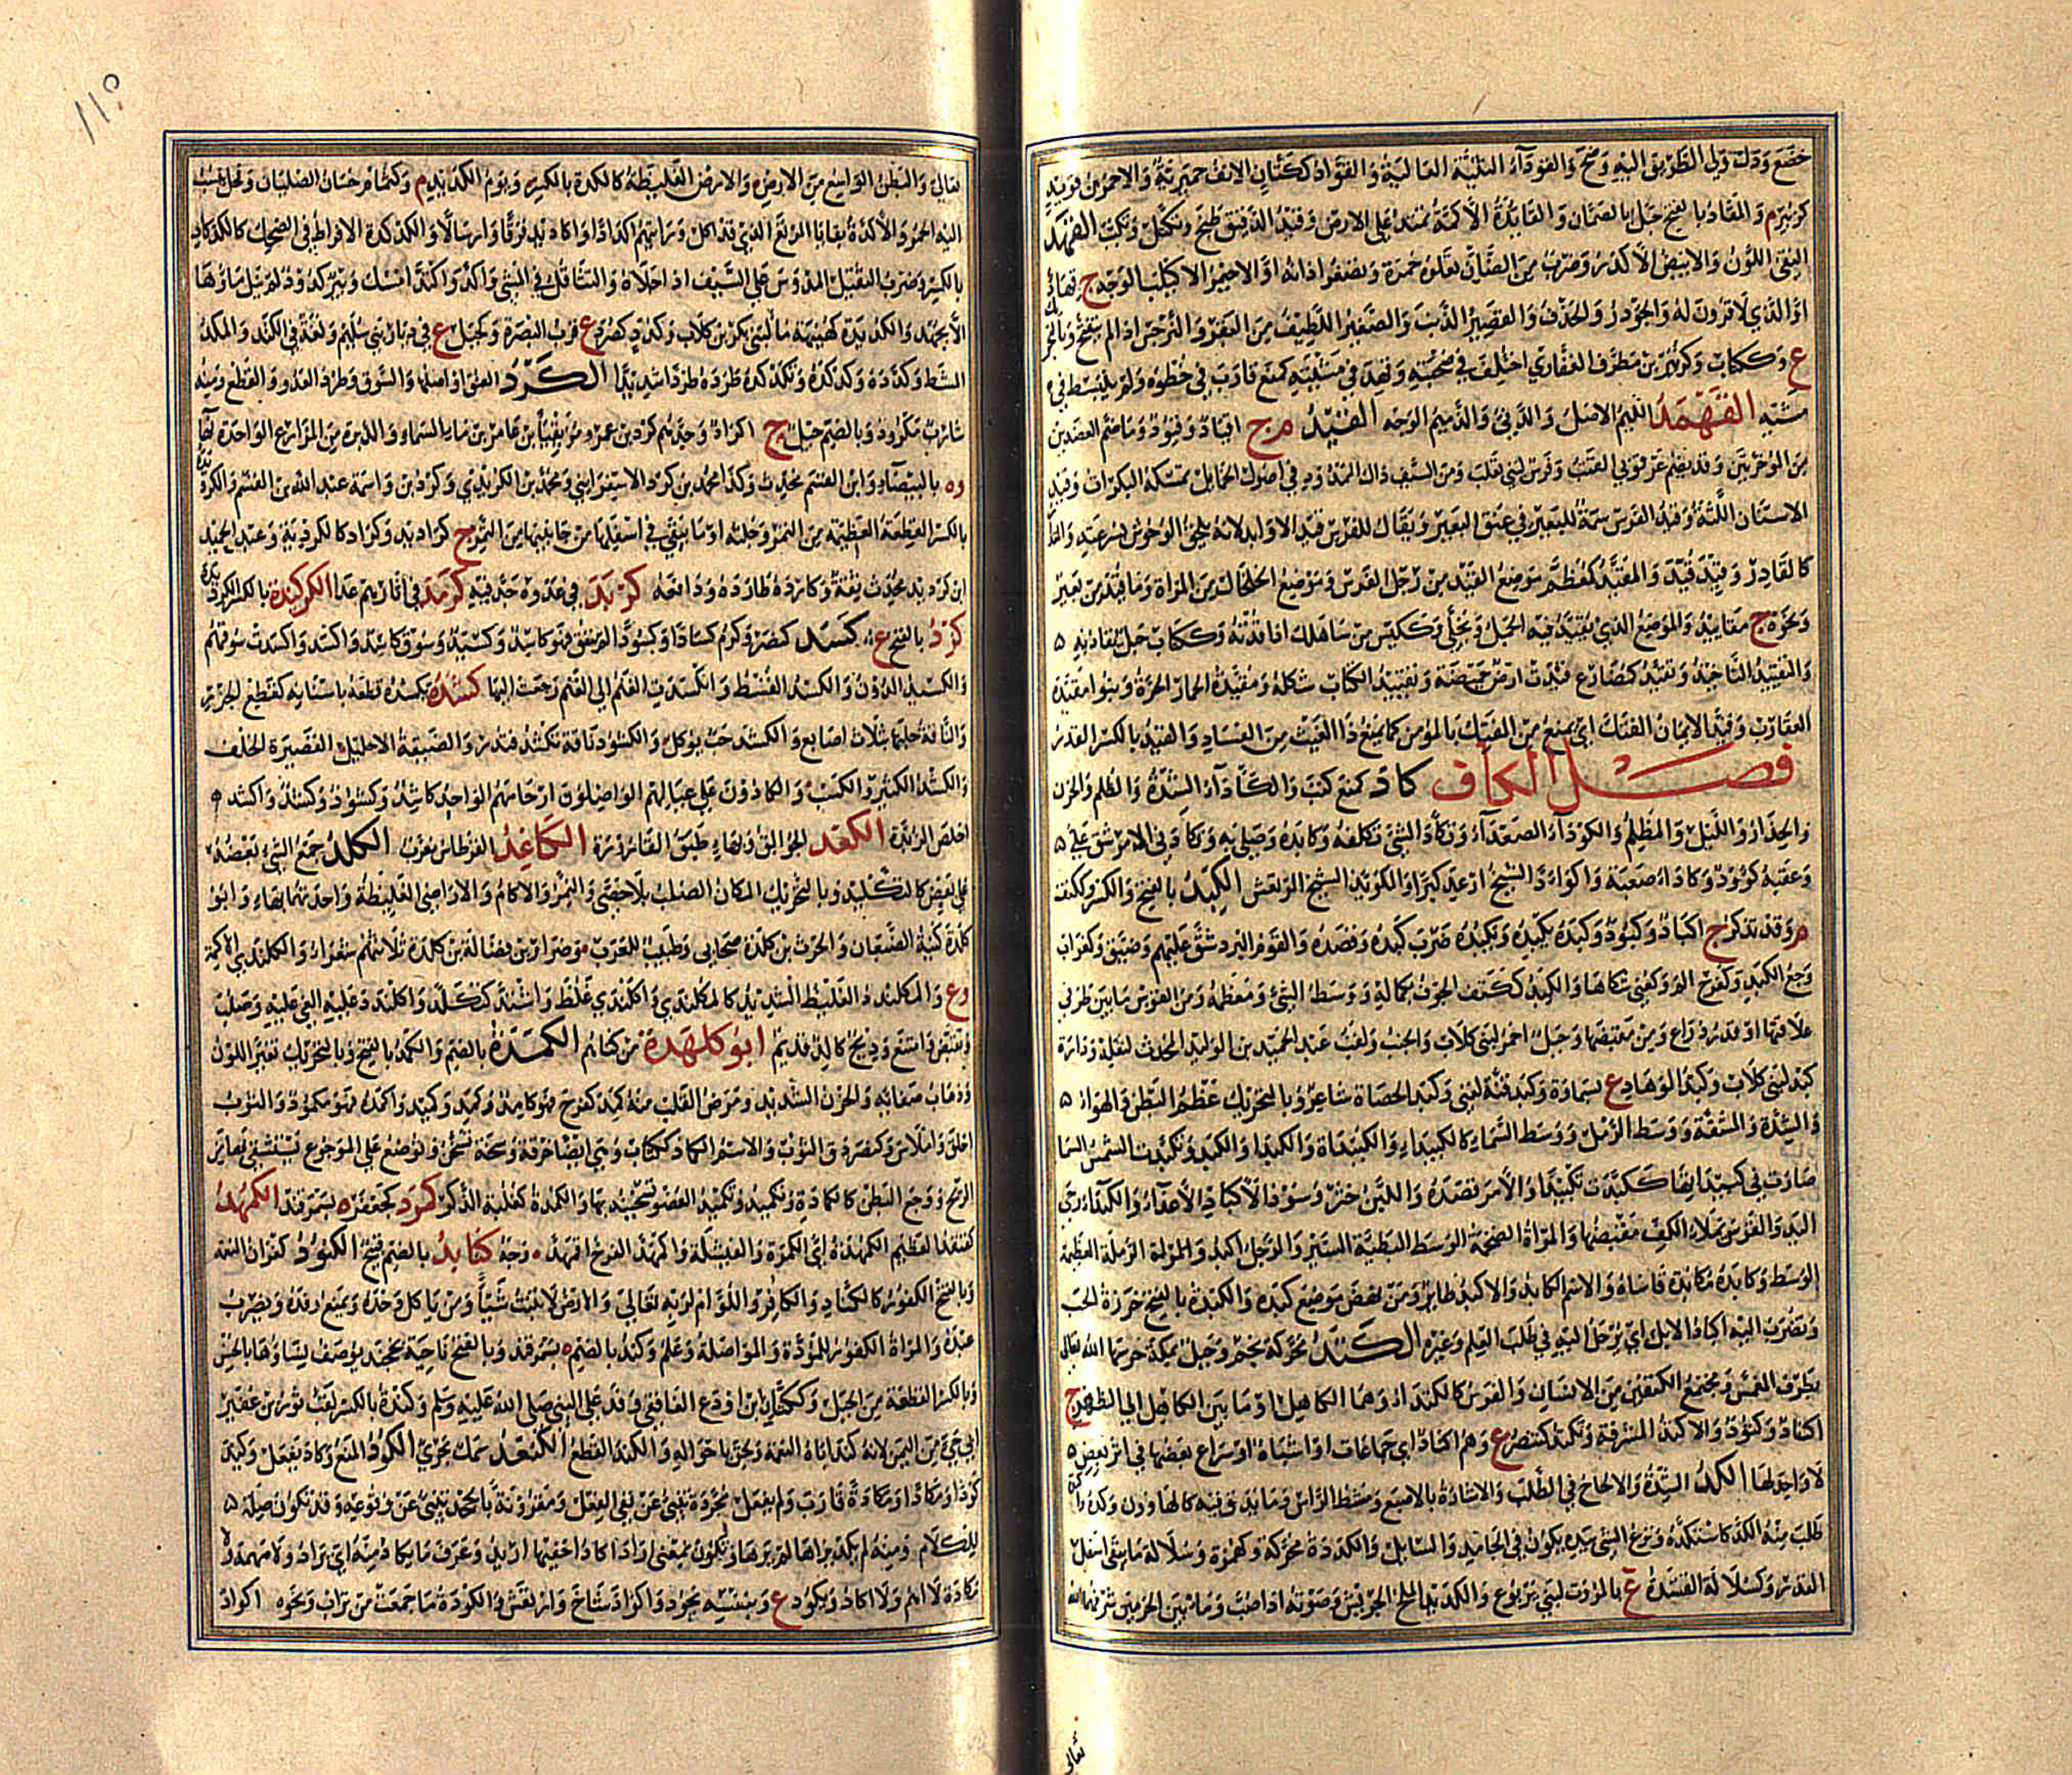 خضع وذل ولي الطريق اليه وضح والقوداء الثنية العالية والقواد ككتان الانف حميرية والاحمر بن قويد
كزبير م والمقاد بالفتح جبل بالصمان والقايدة الاكمة تمتد على الارض وقيد الدقيق طبخ وتكتل وتكبب القهد
النقي اللون والابيض الاكدر وضرب من الضان تعلوه حمرة وتصغر اذانه او الاحيمر الاكيلب الوجه ج قهاد
او الذي لا قرون له والجؤذر والحذف والقصير الذنب والصغير اللطيف من البقر والنرجس اذا لم يتفتح وبالتحريك
ع وككتاب وكزبير بن مطرف الغفاري اختلف في صحبته وقهد في مشيته كمنع قارب في خطوه ولم ينبسط في
مشيه القهمد اللئيم الاصل والدني والدميم الوجه القيد م ج اقياد وقيود وما ضم العضدتين
من المؤخرتين وقد يضم عرقوبي القتب وفرس لبني تغلب ومن السيف ذاك الممدود في اصول الحمايل تمسكه البكرات وقيد
الاسنان اللثة وقيد الفرس سمة للبعير في عنق البعير ويقال للفرس قيد الاوابد لانه يلحق الوحوش لسرعته والقيا
كالقادر وقيده قيد والمقيد كمعظم موضع القيد من رجل الفرس وموضع الخلخال من المراة وما قيد من بعير
ونحوه ج مقاييد والموضع الذي يقيد فيه الجمل ويخلى وككيس من ساهلك اذا قدته وككتاب حبل يقاد به
والتقييد التاخيذ وتقيد كتضارع قيدت ارض حميضة وتقييد الكتاب شكله ومقيدة الحمار الحرة وبنو مقيدة
العقارب وقيد الايمان الفتك اي يمنع من الفتك بالمؤمن كما يمنع ذا العيث من الفساد والقيد بالكسر القدر
فصل الكاف كاد كمنع كئب والكاداء الشدة والظلم والحزن
والحذار والليل والمظلم والكؤداء الصعداء وتكاد الشئ تكلفه وكابده وصلي به وتكادني الامر شق علي
وعقبة كؤود وكاداء صعبة واكواد الشيخ ارعد كبرا والكوئد الشيخ المرتعش الكبد بالفتح والكسر وككتف
م وقد تذكر ج اكباد وكبود وكبده يكبده ويكبده ضرب كبده وقصده والقوم البرد شق عليهم وضيق وكغراب
وجع الكبد وكفرح الم وكعني شكاها والكبد ككتف الجوف بكماله ووسط الشئ ومعظمه ومن القوس ما بين طرفي
علاقتها او قدر ذراع من مقبضها وجبل احمر لبني كلاب والجنب ولقب عبد الحميد بن الوليد المحدث لثقله ودارة
كبد لبني كلاب وكبد الوهاد ع بسماوة وكبد قنة لغني وكبد الحصاة شاعر وبالتحريك عظم البطن والهواء
والشدة والمشقة ووسط الرمل ووسط السماء كالكبيداء والكبيداة والكبداء والكبد وتكبدت الشمس السما
صارت في كبيدائها ككبدت تكبيدا والامر قصده واللبن خثر وسود الاكباد الاعداء والكبداء رحى
اليد والقوس يملأ الكف مقبضها والمراة الضخمة الوسط البطيئة السير والرجل اكبد والرملة العظيمة
الوسط وكابده مكابدة قاساه والاسم الكابد والاكبد طاير ومن نهض موضع كبده والكبدة بالفتح خرزة الحب
وتضرب اليه اكباد الابل اي يرحل اليه في طلب العلم وغيره الكتد محركة نجم وجبل بمكة حرسها الله تعالى
بطرف المغمس ومجتمع الكتفين من الانسان والفرس كالكتد او هما الكاهل او ما بين الكاهل الى الظهر ج
اكتاد وكتود والاكتد المشرفة وتكتد كتنصر ع وهم اكتاد اي جماعات او اشباه او سراع بعضها في اثر بعض
لا واحد لها الكد الشدة والالحاح في الطلب والاشارة بالاصبع ومشط الراس وما يدق فيه كالهاون وكده واكتده
طلب منه الكد كاستكده ونزع الشئ بيده يكون في الجامد والسايل والكددة محركة وكهمزة وسلالة ما يبقى اسفل
القدر وكسلالة القشدة ع بالمروت لبني يربوع والكديد الملح الجريش وصوته اذا صب وما بين الحرمين شرفهما الله
تعالى
١١٥
تعالى والبطن الواسع من الارض والارض الغليظة كالكدة بالكسر ويوم الكديد م وكتمام حسان الصليان وفحل تنسب
اليه الحمر والاكدة بقايا المرتع الذي قد اكل ورايتهم اكدادا واكاديد فرقا وارسالا والكدكدة الافراط في الضحك كالكدكاد
بالكسر وضرب الصيقل المدوس على السيف اذا جلاه والتثاقل في المشي واكد واكتد امسك وبئر كدود لم ينل ماؤها
الا بجهد والكديدة كجهينة ماء لبني بكر بن كلاب وكدد كصرد ع قرب البصرة وكجبل ع في ديار بني سليم ولغة في الكتد والمكد
المشط وكدده وكدكده وتكدكده طرده طردا شديدا الكرد العنق او اصلها والسوق وطرد العدو والقطع ومنه
شارب مكرود وبالضم جيل ج اكراد وجدهم كرد بن عمرو مزيقياء بن عامر بن ماء السماء والدبرة من المزارع الواحدة بهاء
وه بالبيضاء وابن القسم محدث وكذا محمد بن كرد الاسفرايني ومحمد بن الكريدي وكردين واسمه عبد الله بن القسم والكردية
بالكسر القطعة العظيمة من التمر وجلته او ما يبقى في اسفلها من جانبيها من التمر ج كراديد وكراد كالكردية وعبد الحميد
ابن كرديد محدث ثقة وكارده طارده ودافعه كربد في عدوه جد فيه كرمد في اثارهم عدا الكركيدة بالكسر الكرديدة
كزد بالفتح ع كسد كنصر وكرم كسادا وكسودا لم ينفق فهو كاسد وكسيد وسوق كاسد واكسد واكسدت سوقهم
والكسيد الدون والكسد القسط وانكسدت الغنم الى الغنم رجعت اليها كشده يكشده قطعه باسنانه كقطع الجزر
والناقة حلبها بثلاث اصابع والكشد حب يوكل والكشود ناقة تكشد فتدر والضيقة الاحليل القصيرة الخلف
والكشد الكثيرو الكسب والكادون على عيالهم الواصلون ارحامهم الواحد كاشد وكشود وكشد واكشد
اخلص الزبدة الكعد الجوالق وبهاء طبق القارورة الكاغد القرطاس معرب الكلد جمع الشئ بعضه
على بعض كالتكليد وبالتحريك المكان الصلب بلا حصى والنمر والاكام والاراضي الغليظة واحدتهما بهاء وابو
كلدة كنية الضبعان والحرث بن كلدة صحابي وطبيب للعرب وضرار بن فضالة بن كلدة ثلاثتهم شعراء والكلندى الاكمة
وع والمكلندد الغليظ الشديد كالمكلندي واكلندى غلظ واشتد كتكلد واكلندد عليه القى عليه وصلب
وتقبض وامتنع وذيخ كالد قديم ابو كلهدة من كناهم الكمدة بالضم والكمد بالفتح وبالتحريك تغير اللون
وذهاب صفائه والحزن الشديد ومرض القلب منه كمد كفرح فهو كامد وكمد وكميد واكمده فهو مكمود والثوب
اخلق واملاس وكنصر دق الثوب والاسم الكماد ككتاب وهي ايضا خرقة وسخة تسخن وتوضع على الموجوع تستشفي بها من
الريح ووجع البطن كالكمادة وتكميد وتكميد العضو تسخينه بها والكمدة كعتلة الذكر كمرد كجعفر ه بسمرقند الكمهد
كقنفذ العظيم الكمهدة اي الكمرة والفيشلة واكمهد الفرخ اقمهد وجه كنابد بالضم قبيح الكنود كفران النعمة
وبالفتح الكفور كالكناد والكافر واللوام لربه تعالى والارض لا تنبت شيئا ومن ياكل وحده ويمنع رفده ويضرب
عبده والمراة الكفور للمودة والمواصلة وعلم وكند بالضم ه بسمرقند وبالفتح ناحية بخجند يوصف نساؤها بالحسن
وبالكسر القطعة من الجبل وككتان ابن اودع الغافقي وفد على النبي صلى الله عليه وسلم وكندة بالكسر لقب ثور بن عفير
ابي حي من اليمن لانه كند اباه النعمة ولحق باخواله والكند القطع الكنعد سمك بحري الكود المنع وكاد يفعل وكيد
كودا ومكادا ومكادة قارب ولم يفعل مجردة تنبئ عن نفي الفعل ومقرونة بالجحد تنبئ عن وقوعه وقد تكون صلة
للكلام ومنه لم يكد يراها لم يرها وتكون بمعنى اراد اكاد اخفيها اريد وعرف ما يكاد منه اي يراد ولا مهمة ولا
مكادة لا اهم ولا اكاد ويكود ع وبنفسه يجود واكواد شاخ وارتعش والكودة ما جمعت من تراب ونحوه اكواد